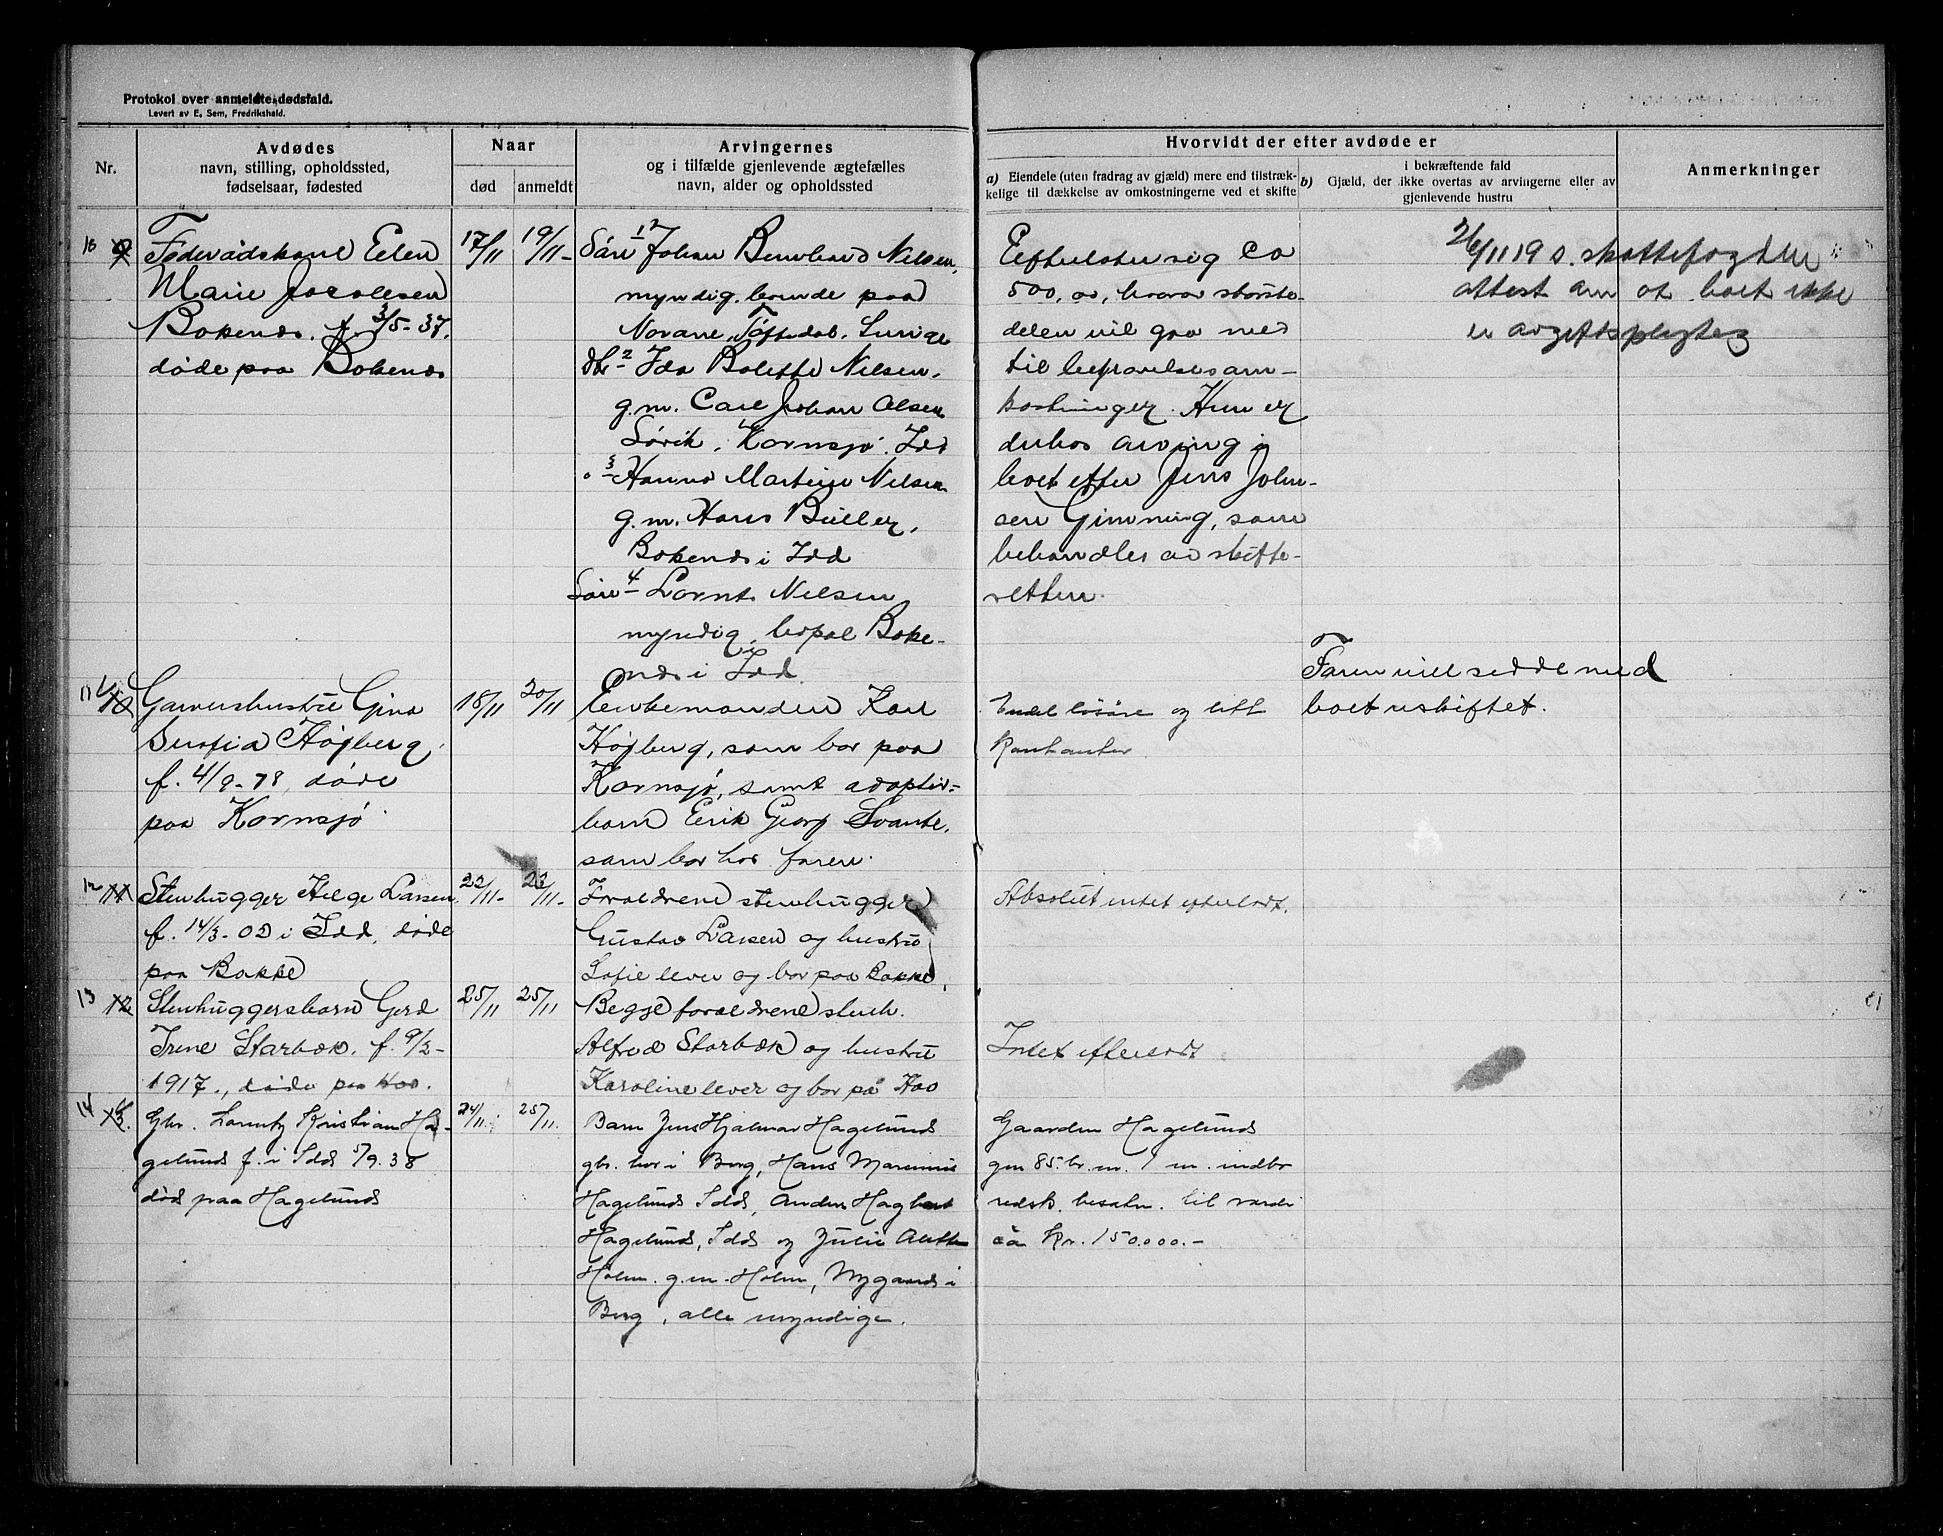 Protokol over anmeldte dødsfald.
Levert av E. Sem, Fredrikshald.
Nr.
Avdødes
navn, stilling, opholdssted,
fødselsaar, fødested
Naar
død
anmeldt
Arvingernes
og i tilfælde gjenlevende ægtefælles
navn, alder og opholdssted
Hvorvidt der efter avdøde er
a) Eiendele (uten fradrag av gjæld) mere end tilstræk-
kelige til dækkelse av omkostningerne ved et skifte
i bekræftende fald
b) Gjæld, der ikke overtas av arvingerne eller av
gjenlevende hustru
Anmerkninger
10
Føderådskone Elen
Marie Jacobsen
Bokenæs. f. 3/5-37.
døde paa Bokenæs
17/11
19/11-
Søn 1 Johan Bernhard Nilsen,
myndig, boende paa
Norane, Töftedal, Sverige
dtr 2 Ida Bolette Nilsen,
g.m. Carl Johan Olsen
Lørik, Kornsjø, Idd
3 Hanna Martine Nilsen
g.m. Hans Buller,
Bokenæs i Idd
Søn 4 Lornts Nilsen
myndig, bopæl Boke-
næs i Idd.
Efterlater sig ca
500,00, hvorav største-
delen vil gaa med
til begravelsesom-
kostninger. Hun er
derhos arving i
boet efter Jens John-
sen Gimming, som
behandles av skifte-
retten.
26/11 19 s. skattefogden
attest om at boet ikke
er avgiftspligtig
11
Garvershustru Gina
Serafia Höjberg,
f. 4/9-78, døde
paa Kornsjø
18/11
20/11
Enkemanden Karl
Höjberg, som bor paa
Kornsjø, samt adoptiv-
barn Erik Georg Svante,
som bor hos faren.
Endel løsøre og litt
kontanter
Faren vil sidde med
boet uskiftet.
12
Stenhugger Helge Larsen
f. 14/3-02 i Idd, døde
paa Bakke
22/11-
23/11-
Forældrene stenhugger
Gustav Larsen og hustru
Sofie lever og bor paa Bakke,
Absolut intet efterladt.
13
Stenhuggersbarn Gerd
Irene Starbæk, f. 9/2-
1917., døde paa Hov.
25/11
25/11
Begge forældrene stenh.
Alfred Starbæk og hustru
Karoline lever og bor på Hov
Intet efterladt
14
Gbr. Lorentz Kristian Ha-
gelund f. i Idd 5/9.38
død paa Hagelund
24/11
25/11
Barn Jens Hjalmar Hagelund
gbr. bor i Berg, Hans Marenius
Hagelund Idd, Anders Hagbart
Hagelund, Idd og Julie Alette
Holm g.m. Holm, Nygaard i
Berg, alle myndige.
Gaarden Hagelund
gnr 85. br.nr. 1 m. indbo
redsk. besætn. til værdi
ca Kr. 150.000.-